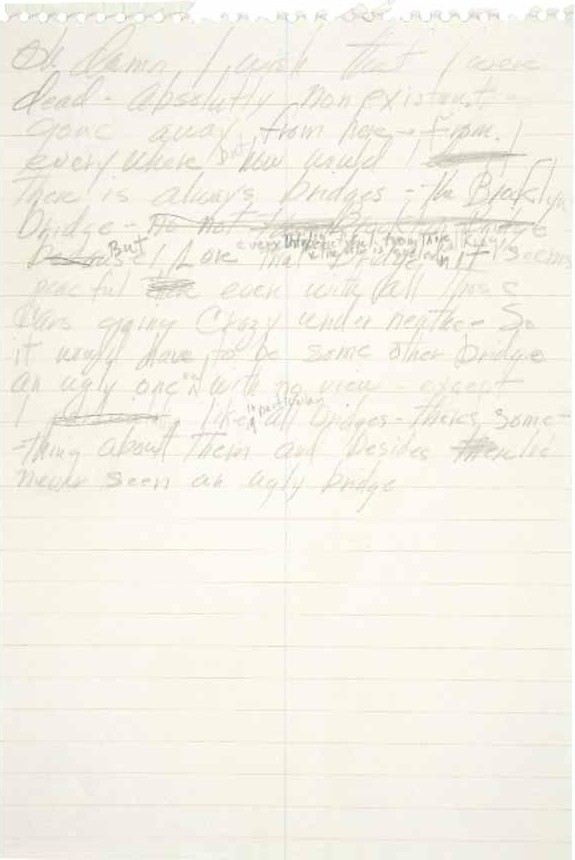 Oh damn I wish that I were
dead - absolutly nonexistent -
gone away from here - from
everywhere but how would I
There is always bridges - the Brooklyn
bridge - no not the Brooklyn Bridge
But I Love that bridge everything is beautiful from there and the air is so clean it seems
peaceful even with all those
Cars going Crazy under neathe - So
it would have to be some other bridge
an ugly one and with no view - except
I like in particular all bridges - theres some-
-thing about them and besides Ive
never seen an ugly bridge